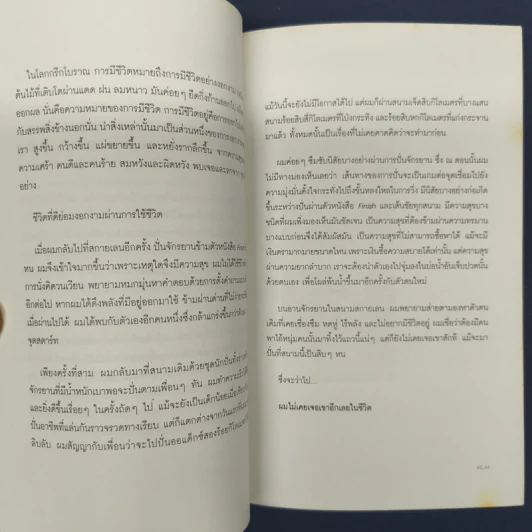 ในโลกกรีกโบราณ การมีชีวิตหมายถึงการมีชีวิตอย่างงอกงาม
ต้นไม้ที่เติบโตผ่านแดด ฝน ลมหนาว มันค่อยๆ ยืดกิ่งก้านออกไป
ออกผล นั่นคือความหมายของการมีชีวิต การมีชีวิตอยู่คือการออกไป
กับสรรพสิ่งข้างนอกนั่น นำสิ่งเหล่านั้นมาเป็นส่วนหนึ่งของ
เรา สูงขึ้น กว้างขึ้น แผ่ขยายขึ้น และหยั่งรากลึกขึ้น จากความ
ความเศร้า คนดีและคนร้าย สมหวังและผิดหวัง พบเจอและลาจาก
อย่าง
ชีวิตที่ดีย่อมงอกงามผ่านการใช้ชีวิต
เมื่อผมกลับไปที่สกายเลนอีกครั้ง ปั่นจักรยานข้ามตัวหนังสือ
หน ผมจึงเข้าใจมากขึ้นว่าเพราะเหตุใดจึงมีความสุข ผมไม่ได้ใช้
การนั่งคิดวนเวียน พยายามหมกมุ่นหาคำตอบด้วยการตั้งคำถาม
อีกต่อไป หากผมได้ดึงพลังที่มีอยู่ออกมาใช้ ข้ามผ่านด่านที่ไม่
เมื่อผ่านไปได้ ผมได้พบกับตัวเองอีกคนหนึ่งซึ่งกล้าแกร่งขึ้นกว่า
จุดสตาร์ท
เพียงครั้งที่สาม ผมกลับมาที่สนามเดิมด้วยชุดนักปั่น
จักรยานที่มีน้ำหนักเบาพอจะปั่นตามเพื่อนๆ ทัน ผมทำความ
และยิ่งดีขึ้นเรื่อยๆ ในครั้งถัดๆ ไป แม้จะยังเป็นเด็กน้อยเมื่อ
ปั่นอาชีพที่แล่นกันราวจรวดทางเรียบ แต่ก็แตกต่างจากวันแรก
ลิบลับ ผมสัญญากับเพื่อนว่าจะไปปั่นออแด็กซ์สองร้อยกิโล
แม้วันนี้จะยังไม่มีโอกาสได้ไป แต่ผมก็ผ่านสนามเจ็ดสิบกิโลเมตรที่บางแสน
สนามร้อยสิบสี่กิโลเมตรที่โป่งกระทิง และร้อยสิบหกกิโลเมตรที่แก่งกระจาน
มาแล้ว ทั้งหมดนั้นเป็นเรื่องที่ไม่เคยคาดคิดว่าจะทำมาก่อน
ผมค่อยๆ ซึมซับนิสัยบางอย่างผ่านการปั่นจักรยาน ซึ่ง ณ ตอนนั้นผม
ไม่มีทางมองเห็นเลยว่า เส้นทางของการปั่นจะเป็นเกมต่อจุดเชื่อมไปยัง
ความมุ่งมั่นตั้งใจกระทั่งไปถึงขั้นหลงใหลในการวิ่ง มีนิสัยบางอย่างก่อเกิด
ขึ้นระหว่างปั่นผ่านตัวหนังสือ Finish และเส้นชัยทุกสนาม มีความสุขบาง
ชนิดที่ผมเพิ่งมองเห็นมันชัดเจน เป็นความสุขที่ต้องข้ามผ่านความทรมาน
บางแบบก่อนจึงได้สัมผัสมัน เป็นความสุขที่ไม่สามารถซื้อหาได้ แม้จะมี
เงินตรามากมายขนาดไหน เพราะเงินซื้อความสบายได้เท่านั้น แต่ความสุข
ผ่านความยากลำบาก เราจะต้องนำตัวเองไปจุ่มลงในบ่อน้ำอันเจ็บปวดนั้น
ด้วยตนเอง เพื่อโผล่พ้นน้ำขึ้นมาอีกครั้งกับตัวตนใหม่
บนอานจักรยานในสนามสกายเลน ผมพยายามส่ายตามองหาตัวตน
เดิมที่เคยเซื่องซึม หดหู่ ไร้พลัง และไม่อยากมีชีวิตอยู่ ผมเชื่อว่าต้องมีคน
พาไอ้หนุ่มคนนั้นมาทิ้งไว้แถวนี้แน่ๆ แต่ก็ยังไม่เคยเจอเขาสักที แม้จะมา
ปั่นที่สนามนี้เป็นสิบๆ หน
ซึ่งจะว่าไป...
ผมไม่เคยเจอเขาอีกเลยในชีวิต